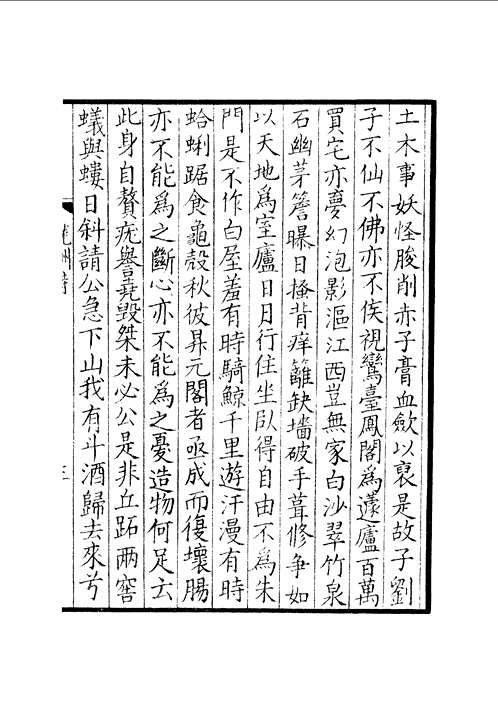 土木事妖怪朘削赤子膏血歛以裒是故子劉
子不仙不佛亦不俟視鸞臺鳳閣為蘧廬百萬
買宅亦夢幻泡影漚江西豈無家白沙翠竹泉
石幽茅簷曝日搔背痒籬缺墻破手葺修争如
以天地為室廬日月行住坐卧得自由不為朱
門是不作白屋羞有時騎鯨千里遊汗漫有時
蛤蜊踞食龜殻秋彼昇元閣者亟成而復壞腸
亦不能為之斷心亦不能為之憂造物何足云
此身自贅疣譽堯毀桀未必公是非丘跖兩窖
蟻與螻日斜請公急下山我有斗酒歸去來兮
龍洲詩
三